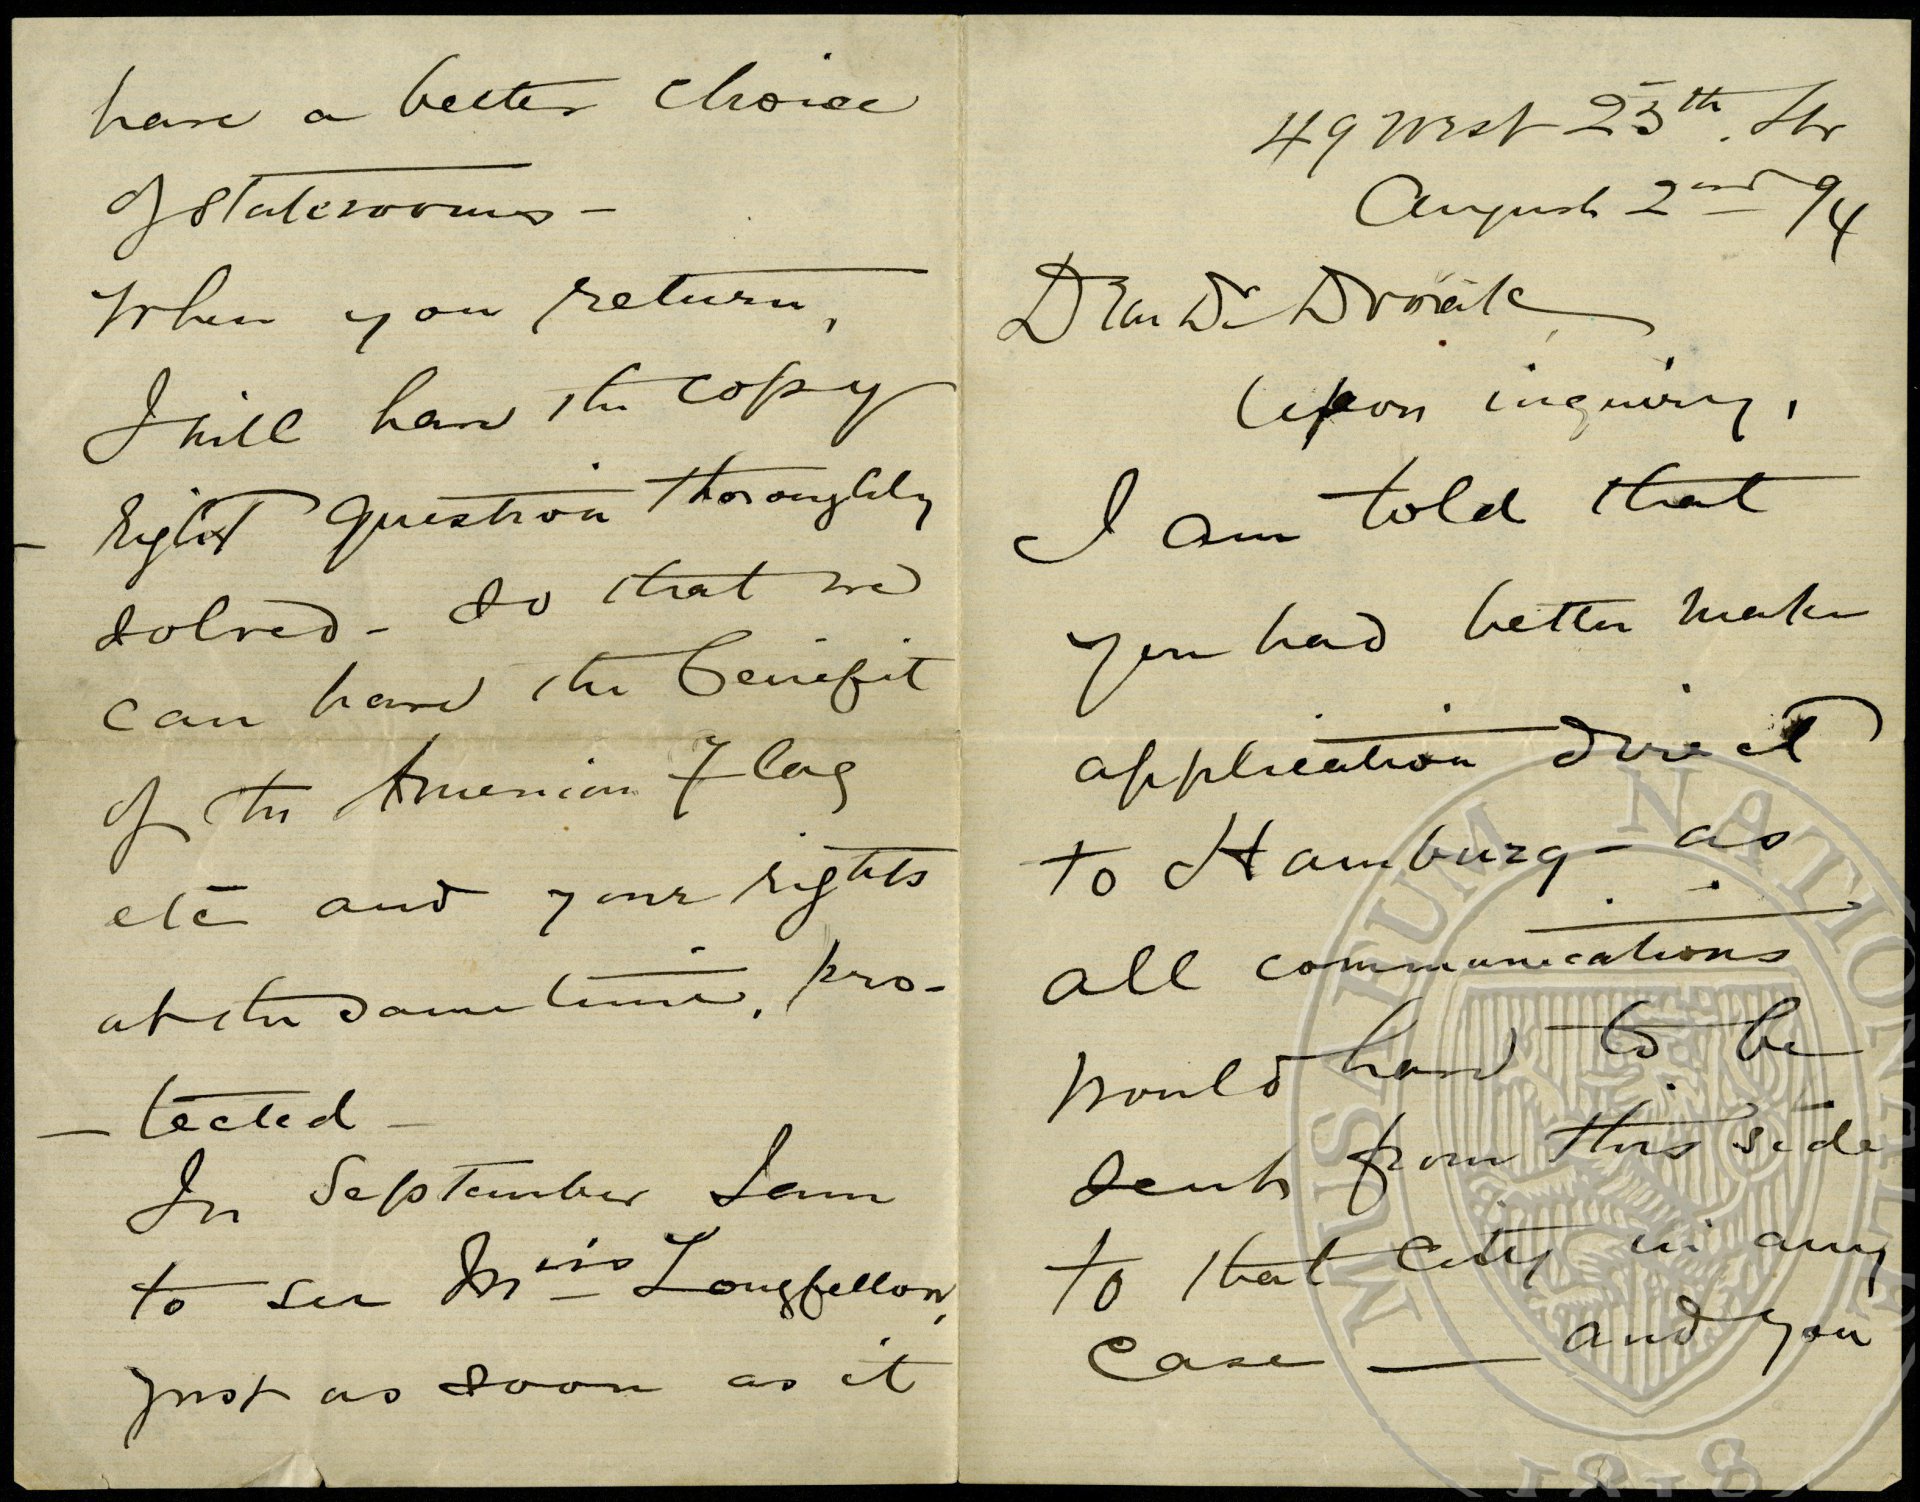 49 West 25th. Str
August 2nd 94
Dear Dr Dvořák
Upon inquiry,
I am told that
you had better make
application direct
to Hamburg - as
all communications
would have to be
sent from this side
to that city in any
case — and you
have a better choice
of staterooms -
When you return,
I will have the copy
right question thoroughly
solved - so that we
can have the benefit
of the American Flag
etc and your rights
at the same time, pro-
- tected -
In September I am
to see Miss Longfellow,
just as soon as it
MUSAEUM NATIONALE
1818